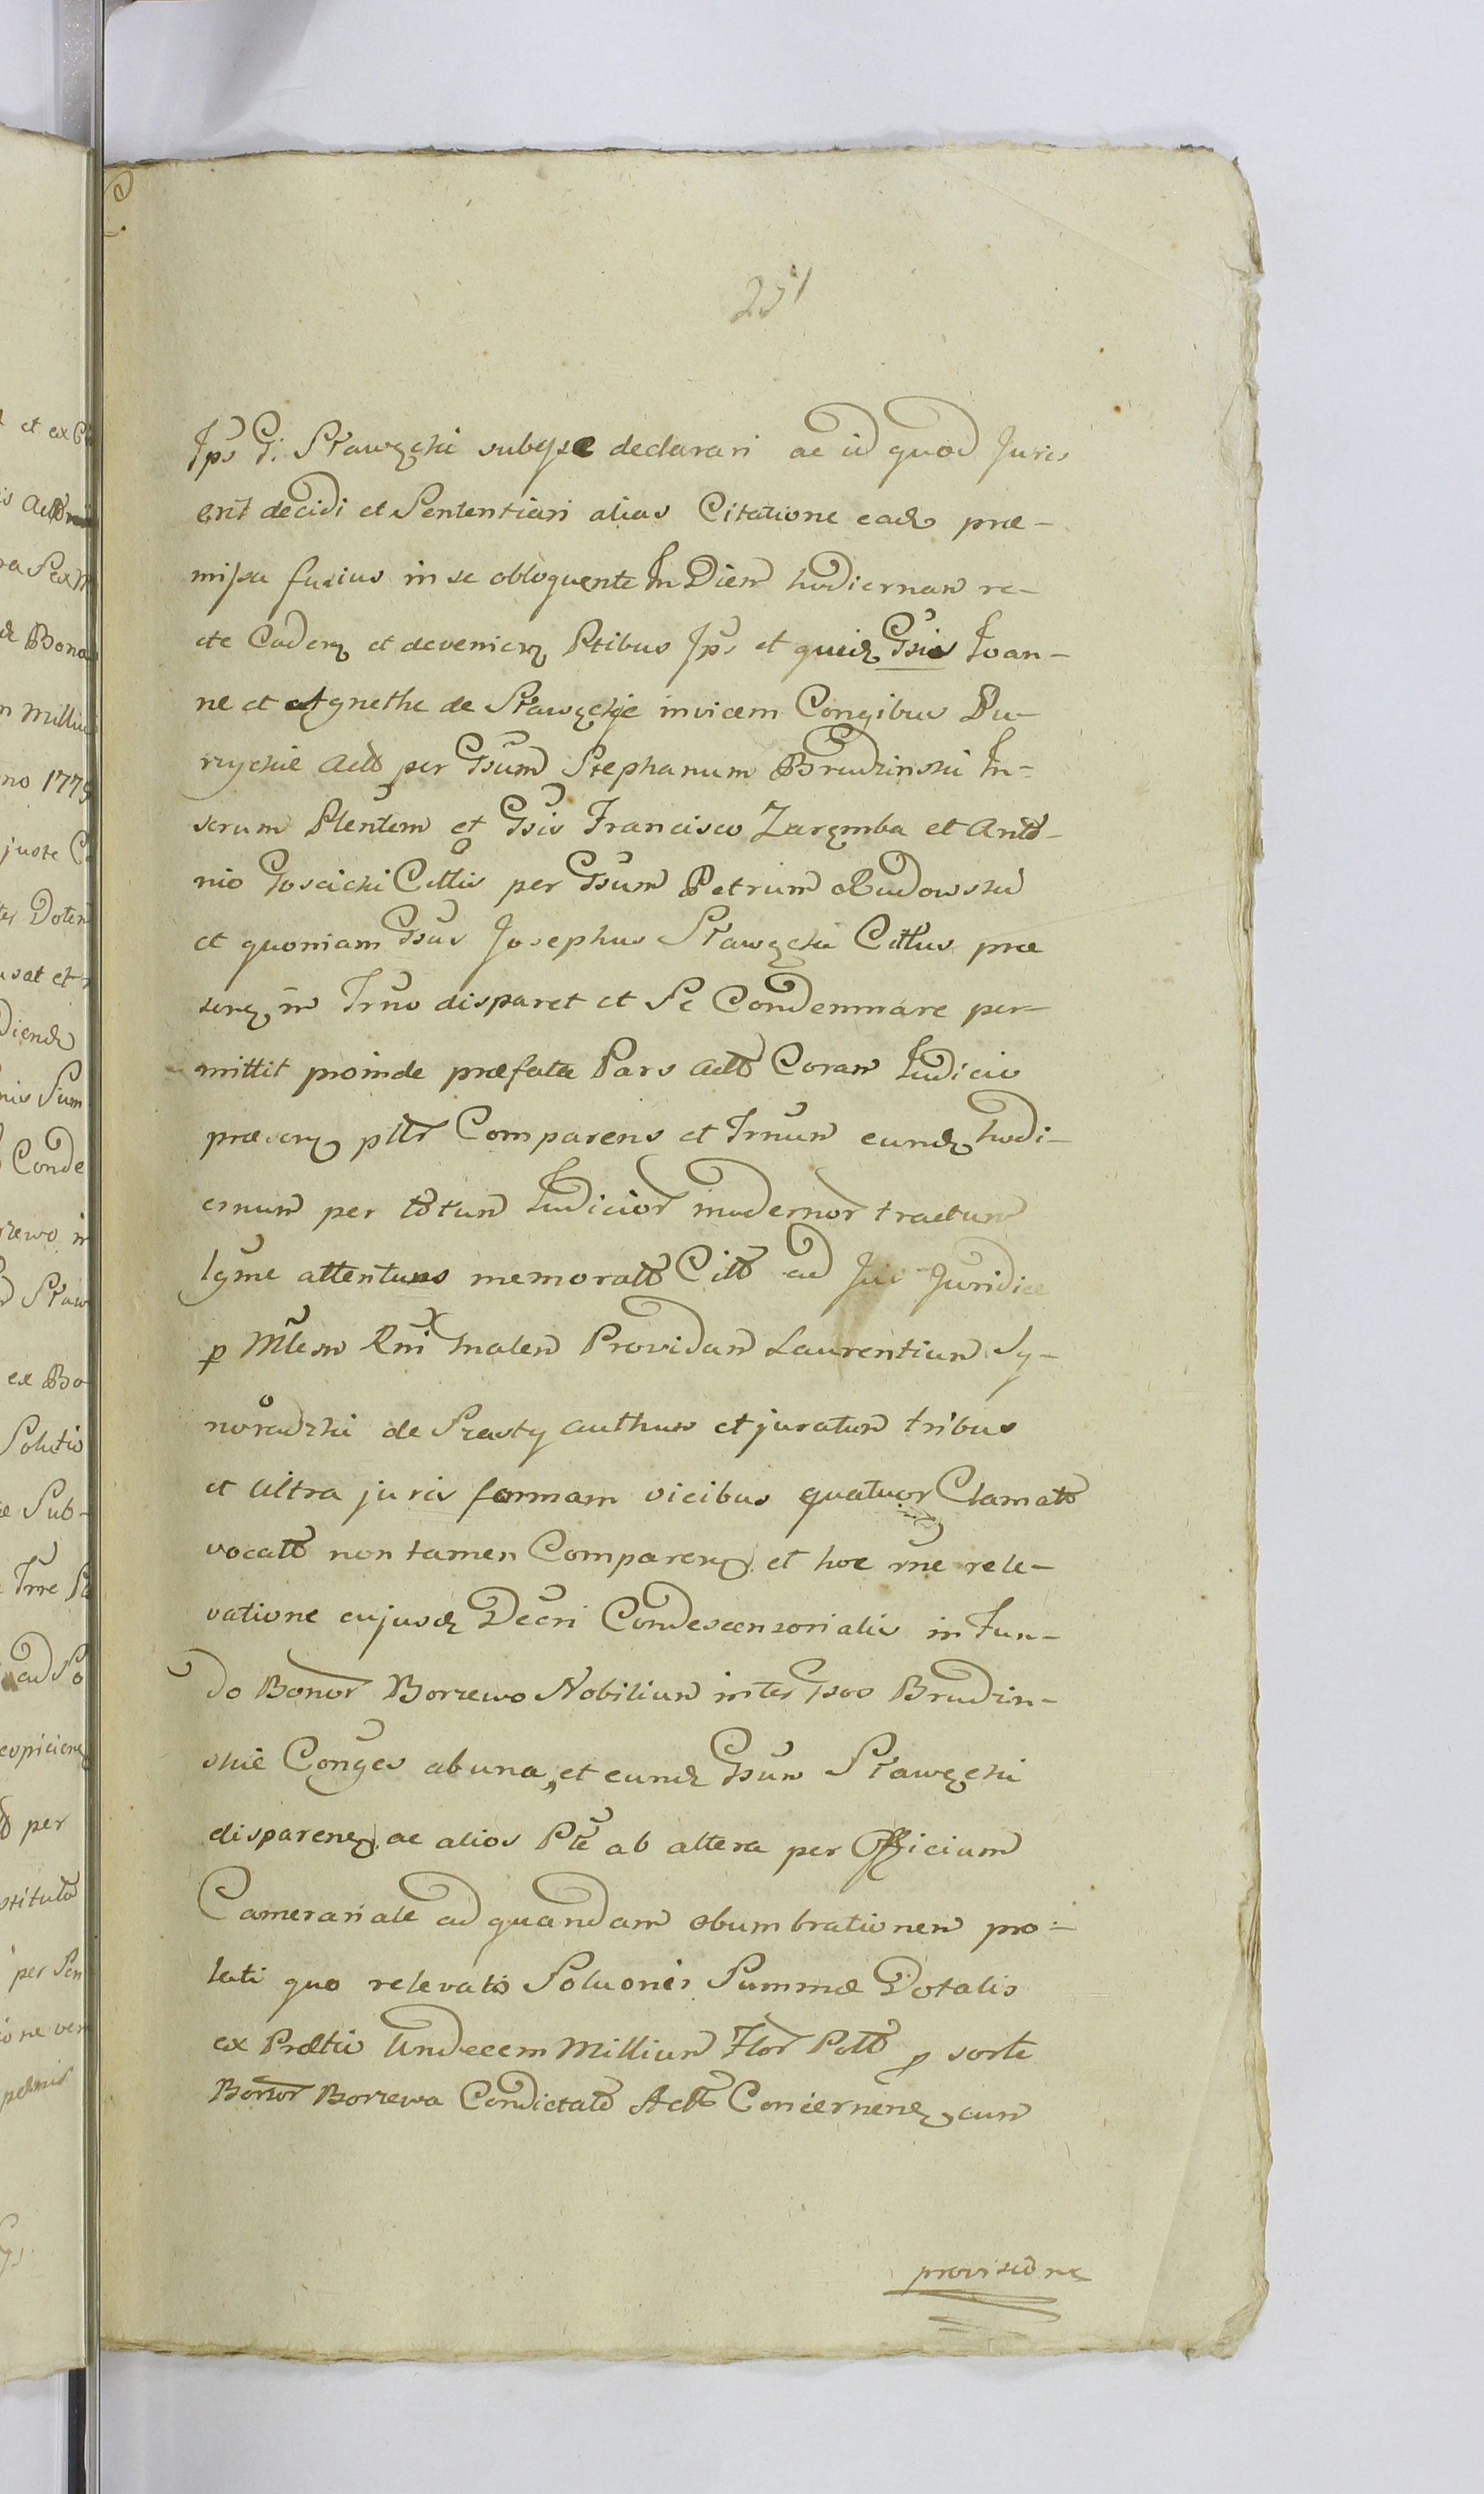 251
Jps G. Stawęcki subijse declarari ac id quod Juris
erit decidi et Sententiari alias Citatione eadę præ-
missa fusius in se obloquente In Diem hodiernam re-
cte Cadenę et devenienę Ptibus Jps et quidę Gsis Joan-
ne et Agnethe de Stawęckie invicem Congibus Du-
rzychie Actt per Gsum Stephanum Brudzinski In-
serum Plentem et Gsis Francisco Zaręmba et Anto-
nio Goscicki Cittis per Gsum Petrum Rudowski
et quoniam Gsus Josephus Stawęcki Cittus præ
senę in Trno disparet et Se Condemnare per-
mittit proinde præfata Pars Actt Coram Judicio
præsenę pltr Comparens et Trnum eundę hodi-
ernum per totum Judicior modernor tractum
lgme attentans memoratt Citt ad Jus Juridice
p Mlem Rni Gnalem Providum Laurentium Sy-
noradzki de Szasty authum et juratum tribus
et ultra juris formam vicibus quatuor Clamatt
vocatt non tamen Comparenę et hoc rne rele-
vatione cujusdę Decri Condescensorialis in Fun-
do Bonor Borzewo Nobilium inter Gsos Brudzin-
skie Conges ab una, et eundę Gsum Stawęcki
disparenę ac alios Pte ab altera per Officium
Camerariale ad quandam obumbrationem pro-
lati quo relevato Soluonis Summæ Dotalis
ex Prætio Undecem Millium Flor Poltt p sorte
Bonor Borzewa Condictatt Actt Concernenę cum
provisione